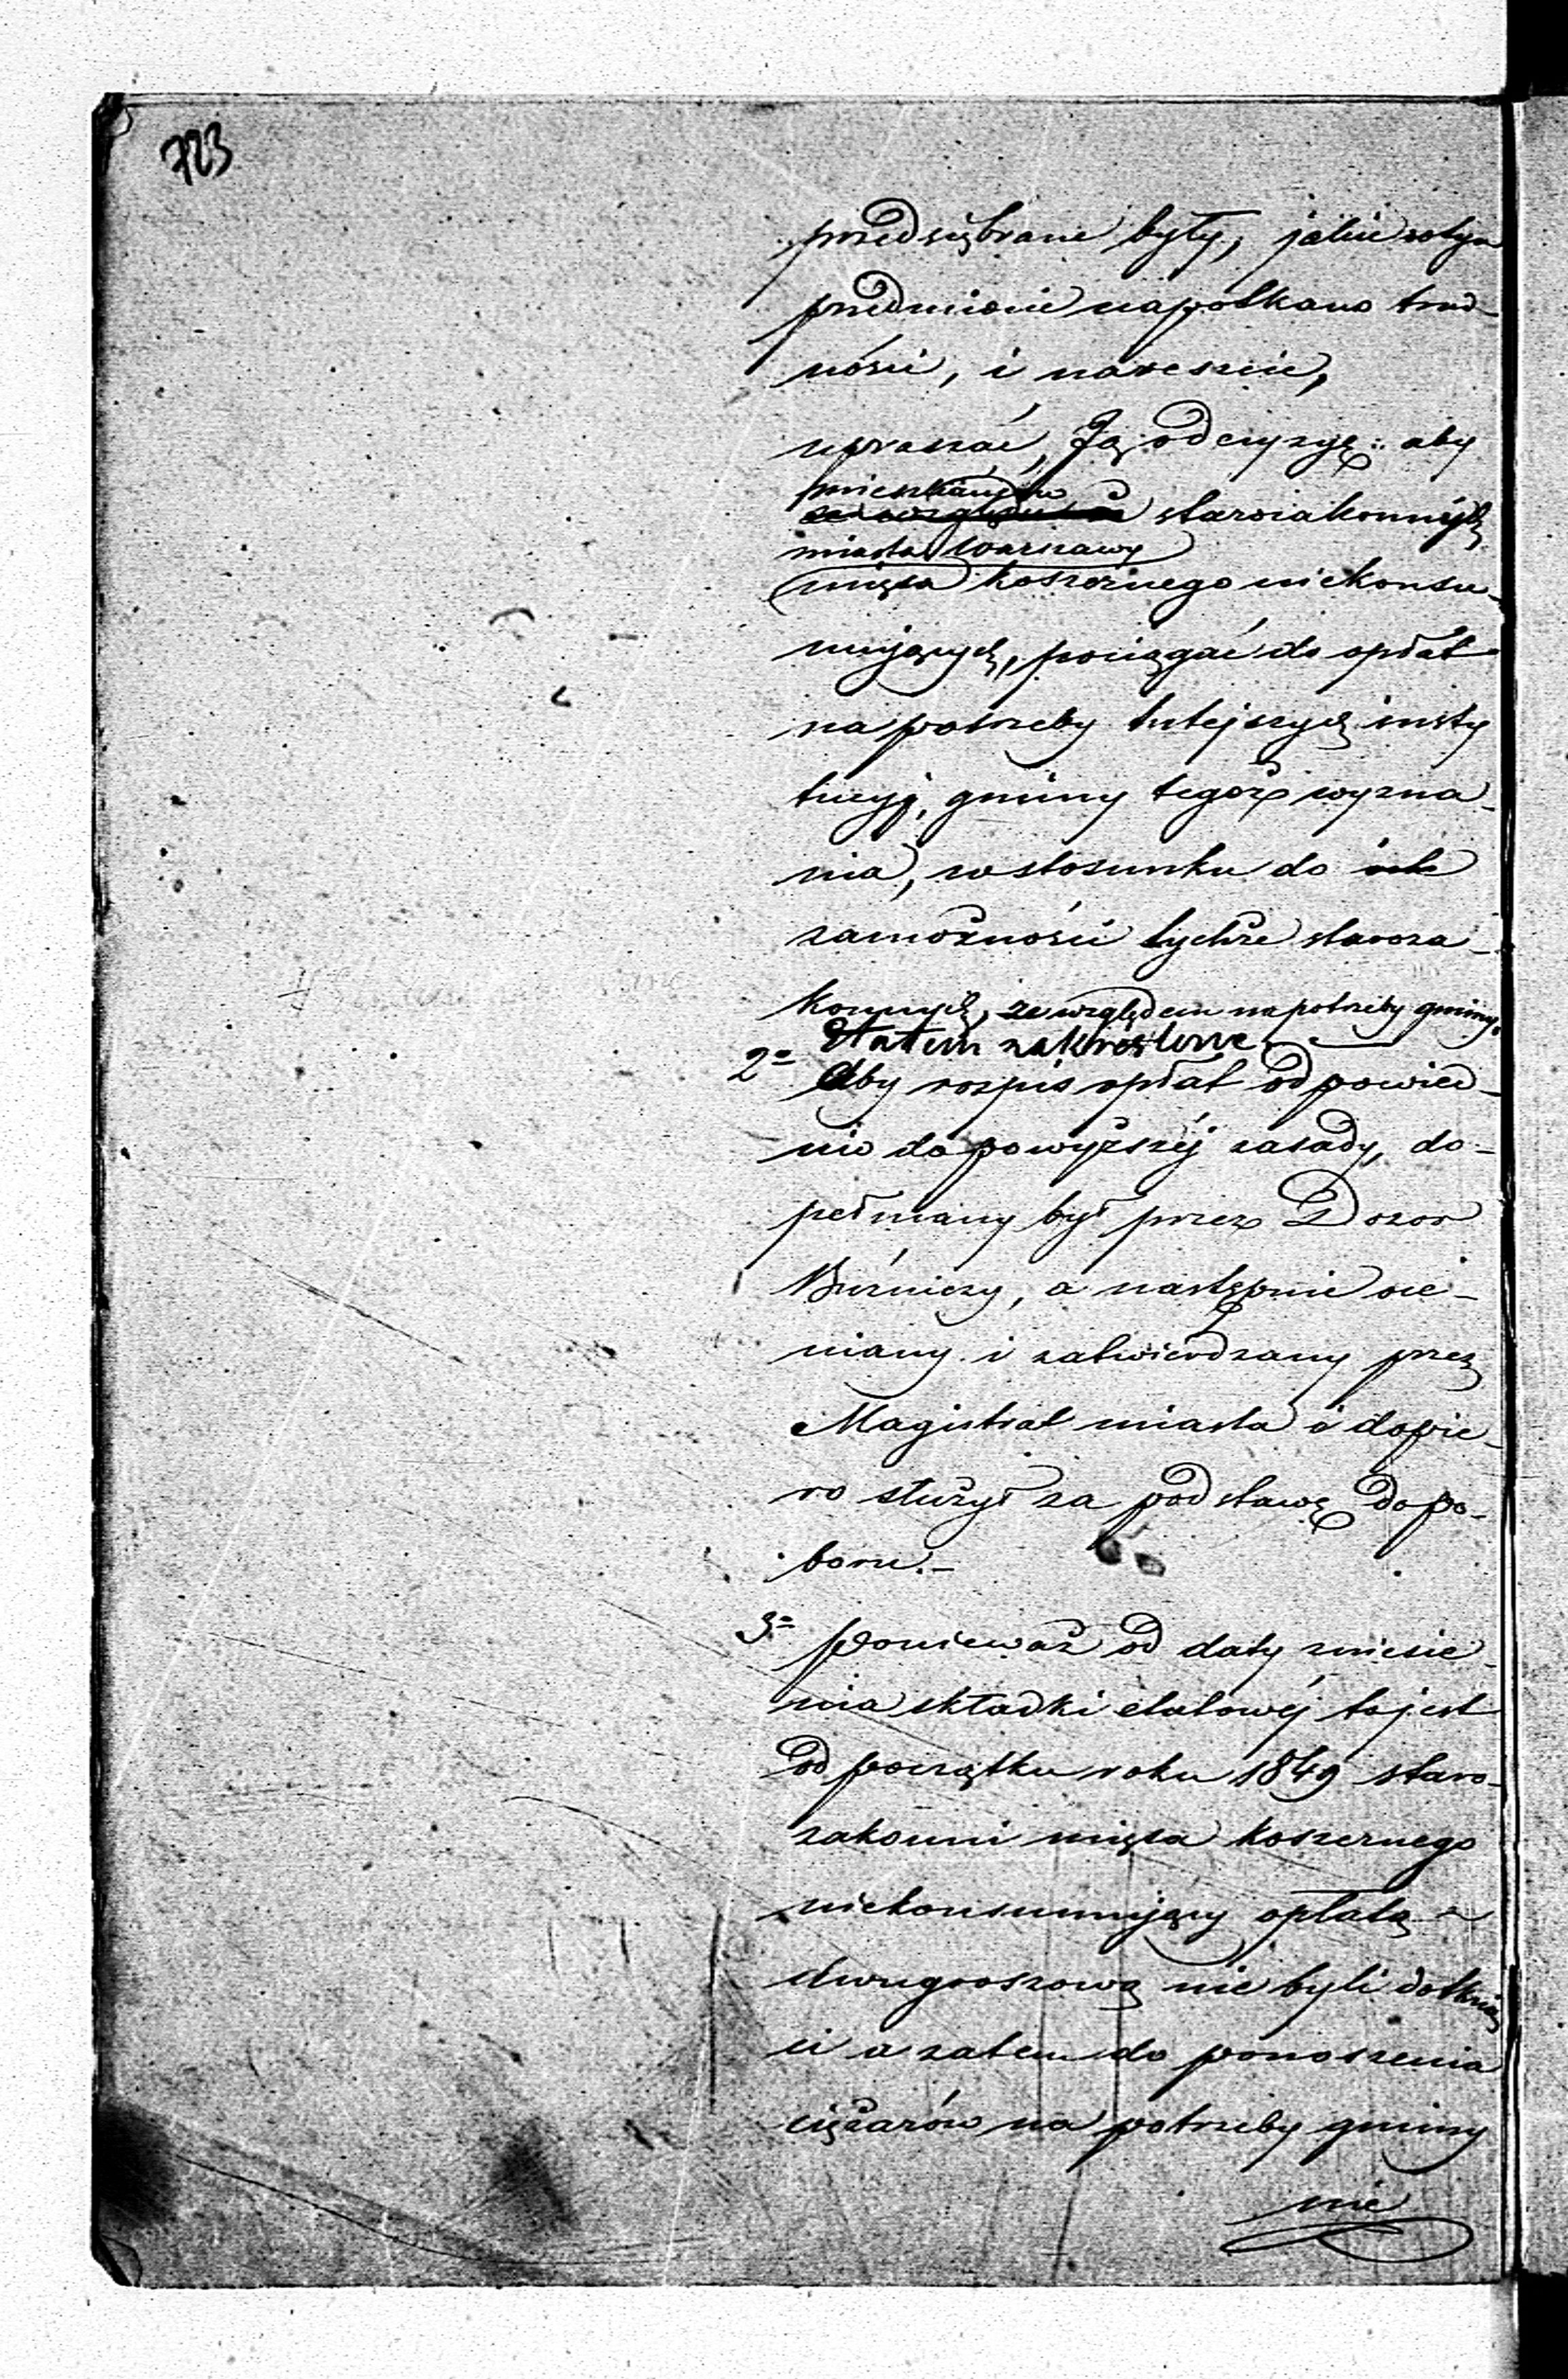 723
przedsiębrane były, jakie w tym
przedmiocie napotkano trud-
ności, i nareszcie,
upraszać Ją o decyzyę: aby
mieszkańców
starozakonnych
miasta Warszawy
mięsa koszernego niekonsu-
mujących, pociągać do opłat
na potrzeby tutejszych insty
tucyj, gminy tegoż wyzna-
nia, w stosunku do ich
zamożności tychże staroza-
konnych, ze względem na potrzeby gminy
Etatem zakreślone.
2= Aby rozpis opłat odpowied-
nio do powyższéj zasady, do-
pełniany był przez Dozor
Bużniczy, a następnie oce-
niany i zatwierdzany przez
Magistrat miasta i dopie-
ro służył za podstawę do po-
boru.-
3= ponieważ od daty zniesie-
nia składki etatowéj to jest
od początku roku 1849 staro-
zakonni mięsa koszernego
niekonsumujący opłatą
dwugroszową nie byli dotknię
ci a zatem do ponoszenia
ciężarów na potrzeby gminy
nie